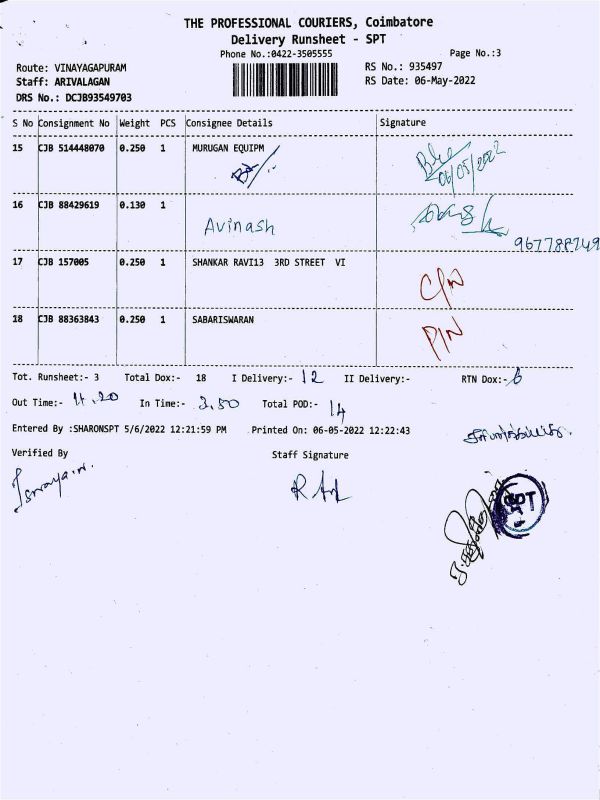 THE PROFESSIONAL COURIERS, Coimbatore
Delivery Runsheet - SPT
Phone No.:0422-3505555
Page No.:3
Route: VINAYAGAPURAM
RS No.: 935497
Staff: ARIVALAGAN
RS Date: 06-May-2022
DRS No.: DCJB93549703
S No Consignment No Weight PCS Consignee Details Signature
15 CJB 514448070 0.250 1 MURUGAN EQUIPM
06/05/2022
16 CJB 88429619 0.130 1
Avinash
17 CJB 157005 0.250 1 SHANKAR RAVI13 3RD STREET VI
18 CJB 88363843 0.250 1 SABARISWARAN
Tot. Runsheet:- 3 Total Dox:- 18 I Delivery:- 12 II Delivery:- RTN Dox:- 6
Out Time:- In Time:- 3.50 Total POD:- 14
Entered By :SHARONSPT 5/6/2022 12:21:59 PM Printed On: 06-05-2022 12:22:43
Verified By Staff Signature
SPT